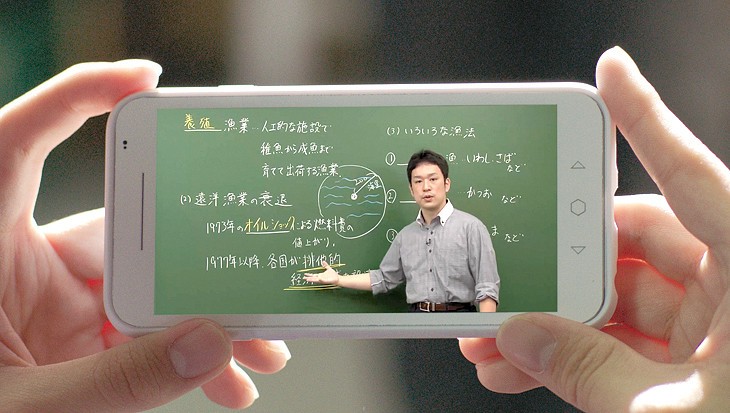 養殖漁業…人工的な施設で
稚魚から成魚まで
育てて出荷する漁業
(2) 遠洋漁業の衰退
1973年のオイルショックによる燃料費の
値上がり、
1977年以降、各国が排他的
経済
200
海里
(3) いろいろな漁法
① いわし、さば
など
② かつお など
など